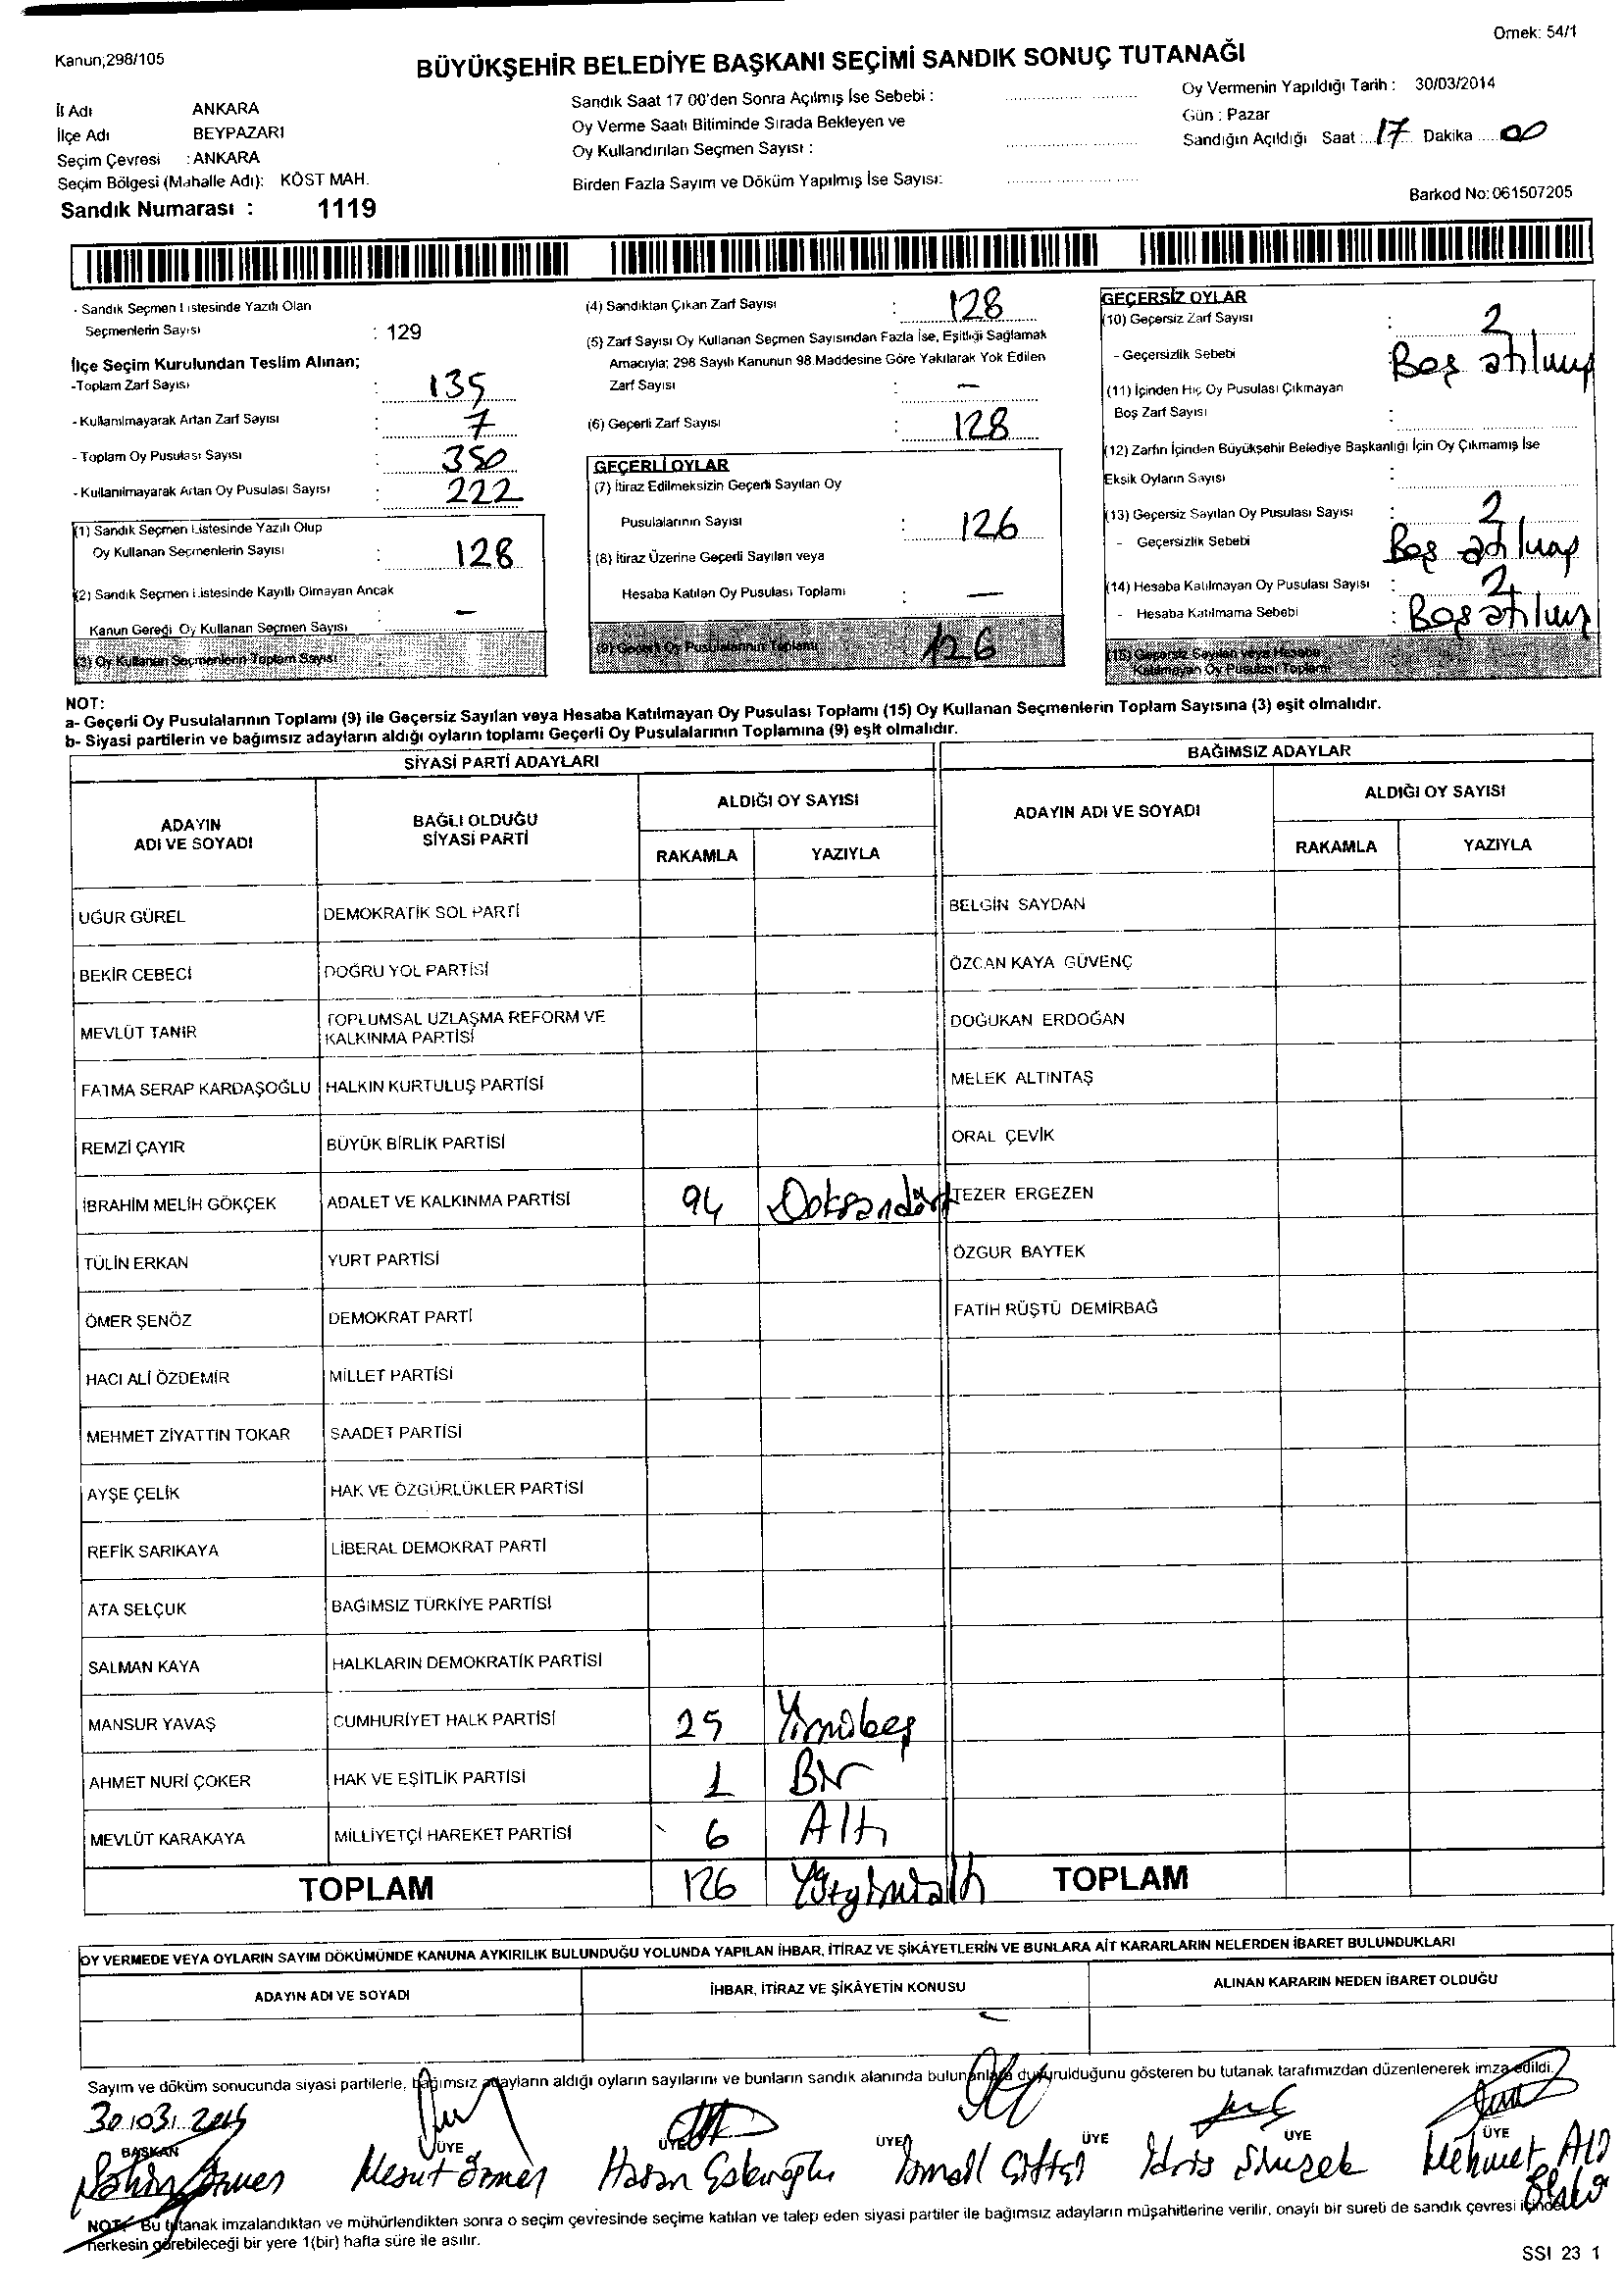 Kanun;298/105
Örnek: 54/1
BÜYÜKŞEHİR BELEDİYE BAŞKANI SEÇİMİ SANDIK SONUÇ TUTANAĞI
İl Adı ANKARA
İlçe Adı BEYPAZARI
Seçim Çevresi : ANKARA
Seçim Bölgesi (Mahalle Adı): KÖST MAH.
Sandık Numarası : 1119
Sandık Saat 17 00'den Sonra Açılmış İse Sebebi :
Oy Verme Saati Bitiminde Sırada Bekleyen ve
Oy Kullandırılan Seçmen Sayısı :
Birden Fazla Sayım ve Döküm Yapılmış İse Sayısı:
Oy Vermenin Yapıldığı Tarih : 30/03/2014
Gün : Pazar
Sandığın Açıldığı Saat : 17 Dakika 00
Barkod No: 061507205
- Sandık Seçmen Listesinde Yazılı Olan
Seçmenlerin Sayısı : 129
İlçe Seçim Kurulundan Teslim Alınan;
-Toplam Zarf Sayısı : 135
- Kullanılmayarak Artan Zarf Sayısı : 7
- Toplam Oy Pusulası Sayısı : 350
- Kullanılmayarak Artan Oy Pusulası Sayısı : 222
(1) Sandık Seçmen Listesinde Yazılı Olup
Oy Kullanan Seçmenlerin Sayısı : 128
(2) Sandık Seçmen Listesinde Kayıtlı Olmayan Ancak
Kanun Gereği Oy Kullanan Seçmen Sayısı : -
(3) Oy Kullanan Seçmenlerin Toplam Sayısı :
(4) Sandıktan Çıkan Zarf Sayısı : 128
(5) Zarf Sayısı Oy Kullanan Seçmen Sayısından Fazla İse, Eşitliği Sağlamak
Amacıyla; 298 Sayılı Kanunun 98.Maddesine Göre Yakılarak Yok Edilen
Zarf Sayısı : -
(6) Geçerli Zarf Sayısı : 128
GEÇERLİ OYLAR
(7) İtiraz Edilmeksizin Geçerli Sayılan Oy
Pusulalarının Sayısı : 126
(8) İtiraz Üzerine Geçerli Sayılan veya
Hesaba Katılan Oy Pusulası Toplamı : -
(9) Geçerli Oy Pusulalarının Toplamı 126
GEÇERSİZ OYLAR
(10) Geçersiz Zarf Sayısı : 2
- Geçersizlik Sebebi : Boş atılmış
(11) İçinden Hiç Oy Pusulası Çıkmayan
Boş Zarf Sayısı :
(12) Zarfın İçinden Büyükşehir Belediye Başkanlığı İçin Oy Çıkmamış İse
Eksik Oyların Sayısı :
(13) Geçersiz Sayılan Oy Pusulası Sayısı : 2
- Geçersizlik Sebebi : Boş atılmış
(14) Hesaba Katılmayan Oy Pusulası Sayısı : 2
- Hesaba Katılmama Sebebi : Boş atılmış
(15) Geçersiz Sayılan veya Hesaba
Katılmayan Oy Pusulası Toplamı
NOT:
a- Geçerli Oy Pusulalarının Toplamı (9) ile Geçersiz Sayılan veya Hesaba Katılmayan Oy Pusulası Toplamı (15) Oy Kullanan Seçmenlerin Toplam Sayısına (3) eşit olmalıdır.
b- Siyasi partilerin ve bağımsız adayların aldığı oyların toplamı Geçerli Oy Pusulalarının Toplamına (9) eşit olmalıdır.
SİYASİ PARTİ ADAYLARI BAĞIMSIZ ADAYLAR
ADAYIN ADI VE SOYADI BAĞLI OLDUĞU SİYASİ PARTİ ALDIĞI OY SAYISI ADAYIN ADI VE SOYADI ALDIĞI OY SAYISI
RAKAMLA YAZIYLA RAKAMLA YAZIYLA
UĞUR GÜREL DEMOKRATİK SOL PARTİ BELGİN SAYDAN
BEKİR CEBECİ DOĞRU YOL PARTİSİ ÖZCAN KAYA GÜVENÇ
MEVLÜT TANIR TOPLUMSAL UZLAŞMA REFORM VE KALKINMA PARTİSİ DOĞUKAN ERDOĞAN
FATMA SERAP KARDAŞOĞLU HALKIN KURTULUŞ PARTİSİ MELEK ALTINTAŞ
REMZİ ÇAYIR BÜYÜK BİRLİK PARTİSİ ORAL ÇEVİK
İBRAHİM MELİH GÖKÇEK ADALET VE KALKINMA PARTİSİ 94 Doksandört TEZER ERGEZEN
TÜLİN ERKAN YURT PARTİSİ ÖZGUR BAYTEK
ÖMER ŞENÖZ DEMOKRAT PARTİ FATİH RÜŞTÜ DEMİRBAĞ
HACI ALİ ÖZDEMİR MİLLET PARTİSİ
MEHMET ZİYATTİN TOKAR SAADET PARTİSİ
AYŞE ÇELİK HAK VE ÖZGÜRLÜKLER PARTİSİ
REFİK SARIKAYA LİBERAL DEMOKRAT PARTİ
ATA SELÇUK BAĞIMSIZ TÜRKİYE PARTİSİ
SALMAN KAYA HALKLARIN DEMOKRATİK PARTİSİ
MANSUR YAVAŞ CUMHURİYET HALK PARTİSİ 25 Yirmibeş
AHMET NURİ ÇOKER HAK VE EŞİTLİK PARTİSİ 1 Bir
MEVLÜT KARAKAYA MİLLİYETÇİ HAREKET PARTİSİ 6 Altı
TOPLAM 126 Yüzyirmialtı TOPLAM
OY VERMEDE VEYA OYLARIN SAYIM DÖKÜMÜNDE KANUNA AYKIRILIK BULUNDUĞU YOLUNDA YAPILAN İHBAR, İTİRAZ VE ŞİKÂYETLERİN VE BUNLARA AİT KARARLARIN NELERDEN İBARET BULUNDUKLARI
ADAYIN ADI VE SOYADI İHBAR, İTİRAZ VE ŞİKÂYETİN KONUSU ALINAN KARARIN NEDEN İBARET OLDUĞU
Sayım ve döküm sonucunda siyasi partilerle, bağımsız adayların aldığı oyların sayılarını ve bunların sandık alanında bulunanlara duyurulduğunu gösteren bu tutanak tarafımızdan düzenlenerek imza edildi.
30.03.2014
BAŞKAN ÜYE ÜYE ÜYE ÜYE ÜYE ÜYE
Mesut Hasan İsmail Çiftçi İdris Mehmet Ali
NOT: Bu tutanak imzalandıktan ve mühürlendikten sonra o seçim çevresinde seçime katılan ve talep eden siyasi partiler ile bağımsız adayların müşahitlerine verilir, onaylı bir sureti de sandık çevresi içinde
herkesin görebileceği bir yere 1(bir) hafta süre ile asılır.
SSI 23 1